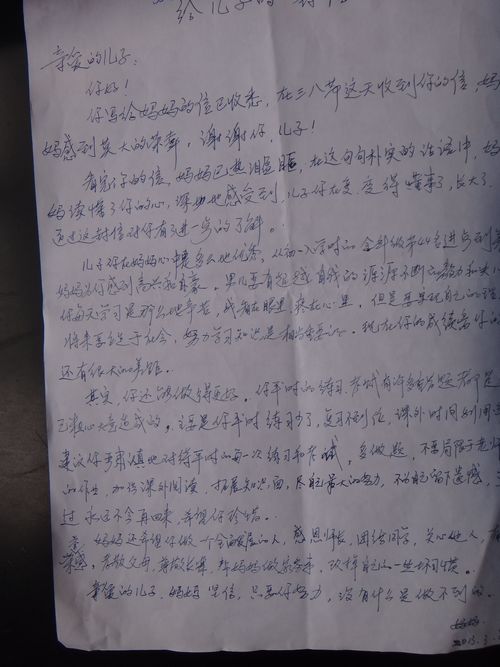 给儿子的一封信
亲爱的儿子：
你好！
你写给妈妈的信已收悉，在三八节这天收到你的信，妈
妈感到莫大的荣幸。谢谢你，儿子！
看完你的信，妈妈已热泪盈眶，在这句句朴实的话语中，妈
妈读懂了你的心，深切地感受到儿子你在变，变得懂事了，长大了，
通过这封信对你有了进一步的了解。
儿子你在妈妈心中是多么地优秀，从初一入学时的全年级第44名进步到
妈妈为你感到高兴和自豪。男儿要有超越自我的源源不断的努力和
你每天学习是那么地辛苦，我看在眼里，疼在心里，但是要实现自己的理
将来要立足于社会，努力学习知识是相当重要的。现在你的成绩离你的
还有很大的差距。
其实，你还能做得更好。你平时的练习、考试有许多错题都是
己粗心大意造成的。主要是你平时练习少了，复习不到位，课外时间利用
建议你要谨慎地对待平时的每一次练习和考试，多做题，不要局限于老师
的作业，加强课外阅读，拓展知识面，尽自己最大的努力，不给自己留下遗憾，
过永远不会再回来，希望你珍惜。
妈妈还希望你做一个全面发展的人，感恩师长，团结同学，关心他人，有
荣感，孝敬父母，尊敬长辈，帮妈妈做家务事，改掉自己的一些坏习惯。
亲爱的儿子，妈妈坚信，只要你努力，没有什么是做不到的。
妈妈
2013.3.